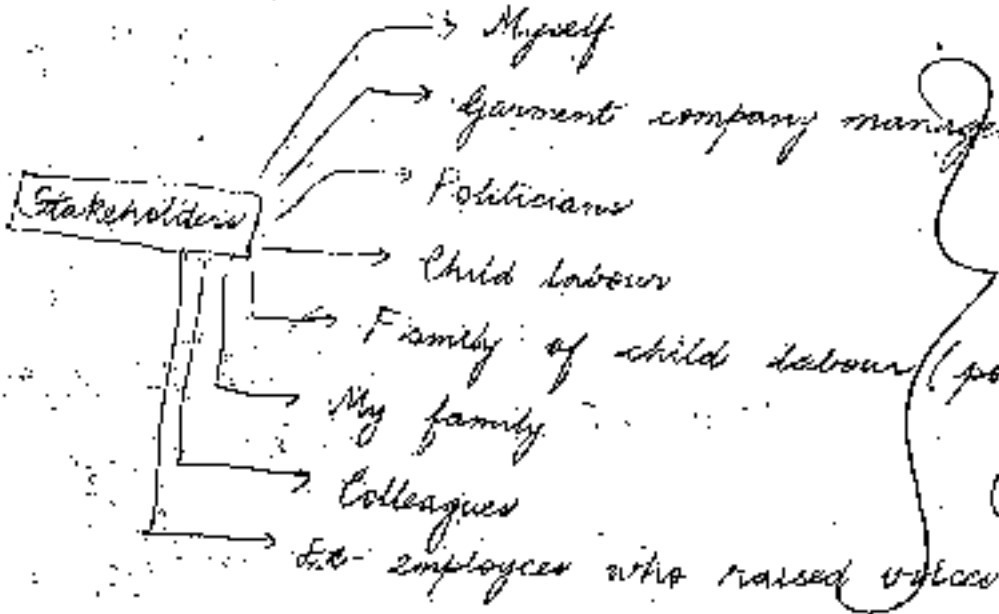 Myself
Garment company manage
Politicians
Stakeholders
Child labour
Family of child labour (po
My family
Colleagues
Ex-employees who raised voices